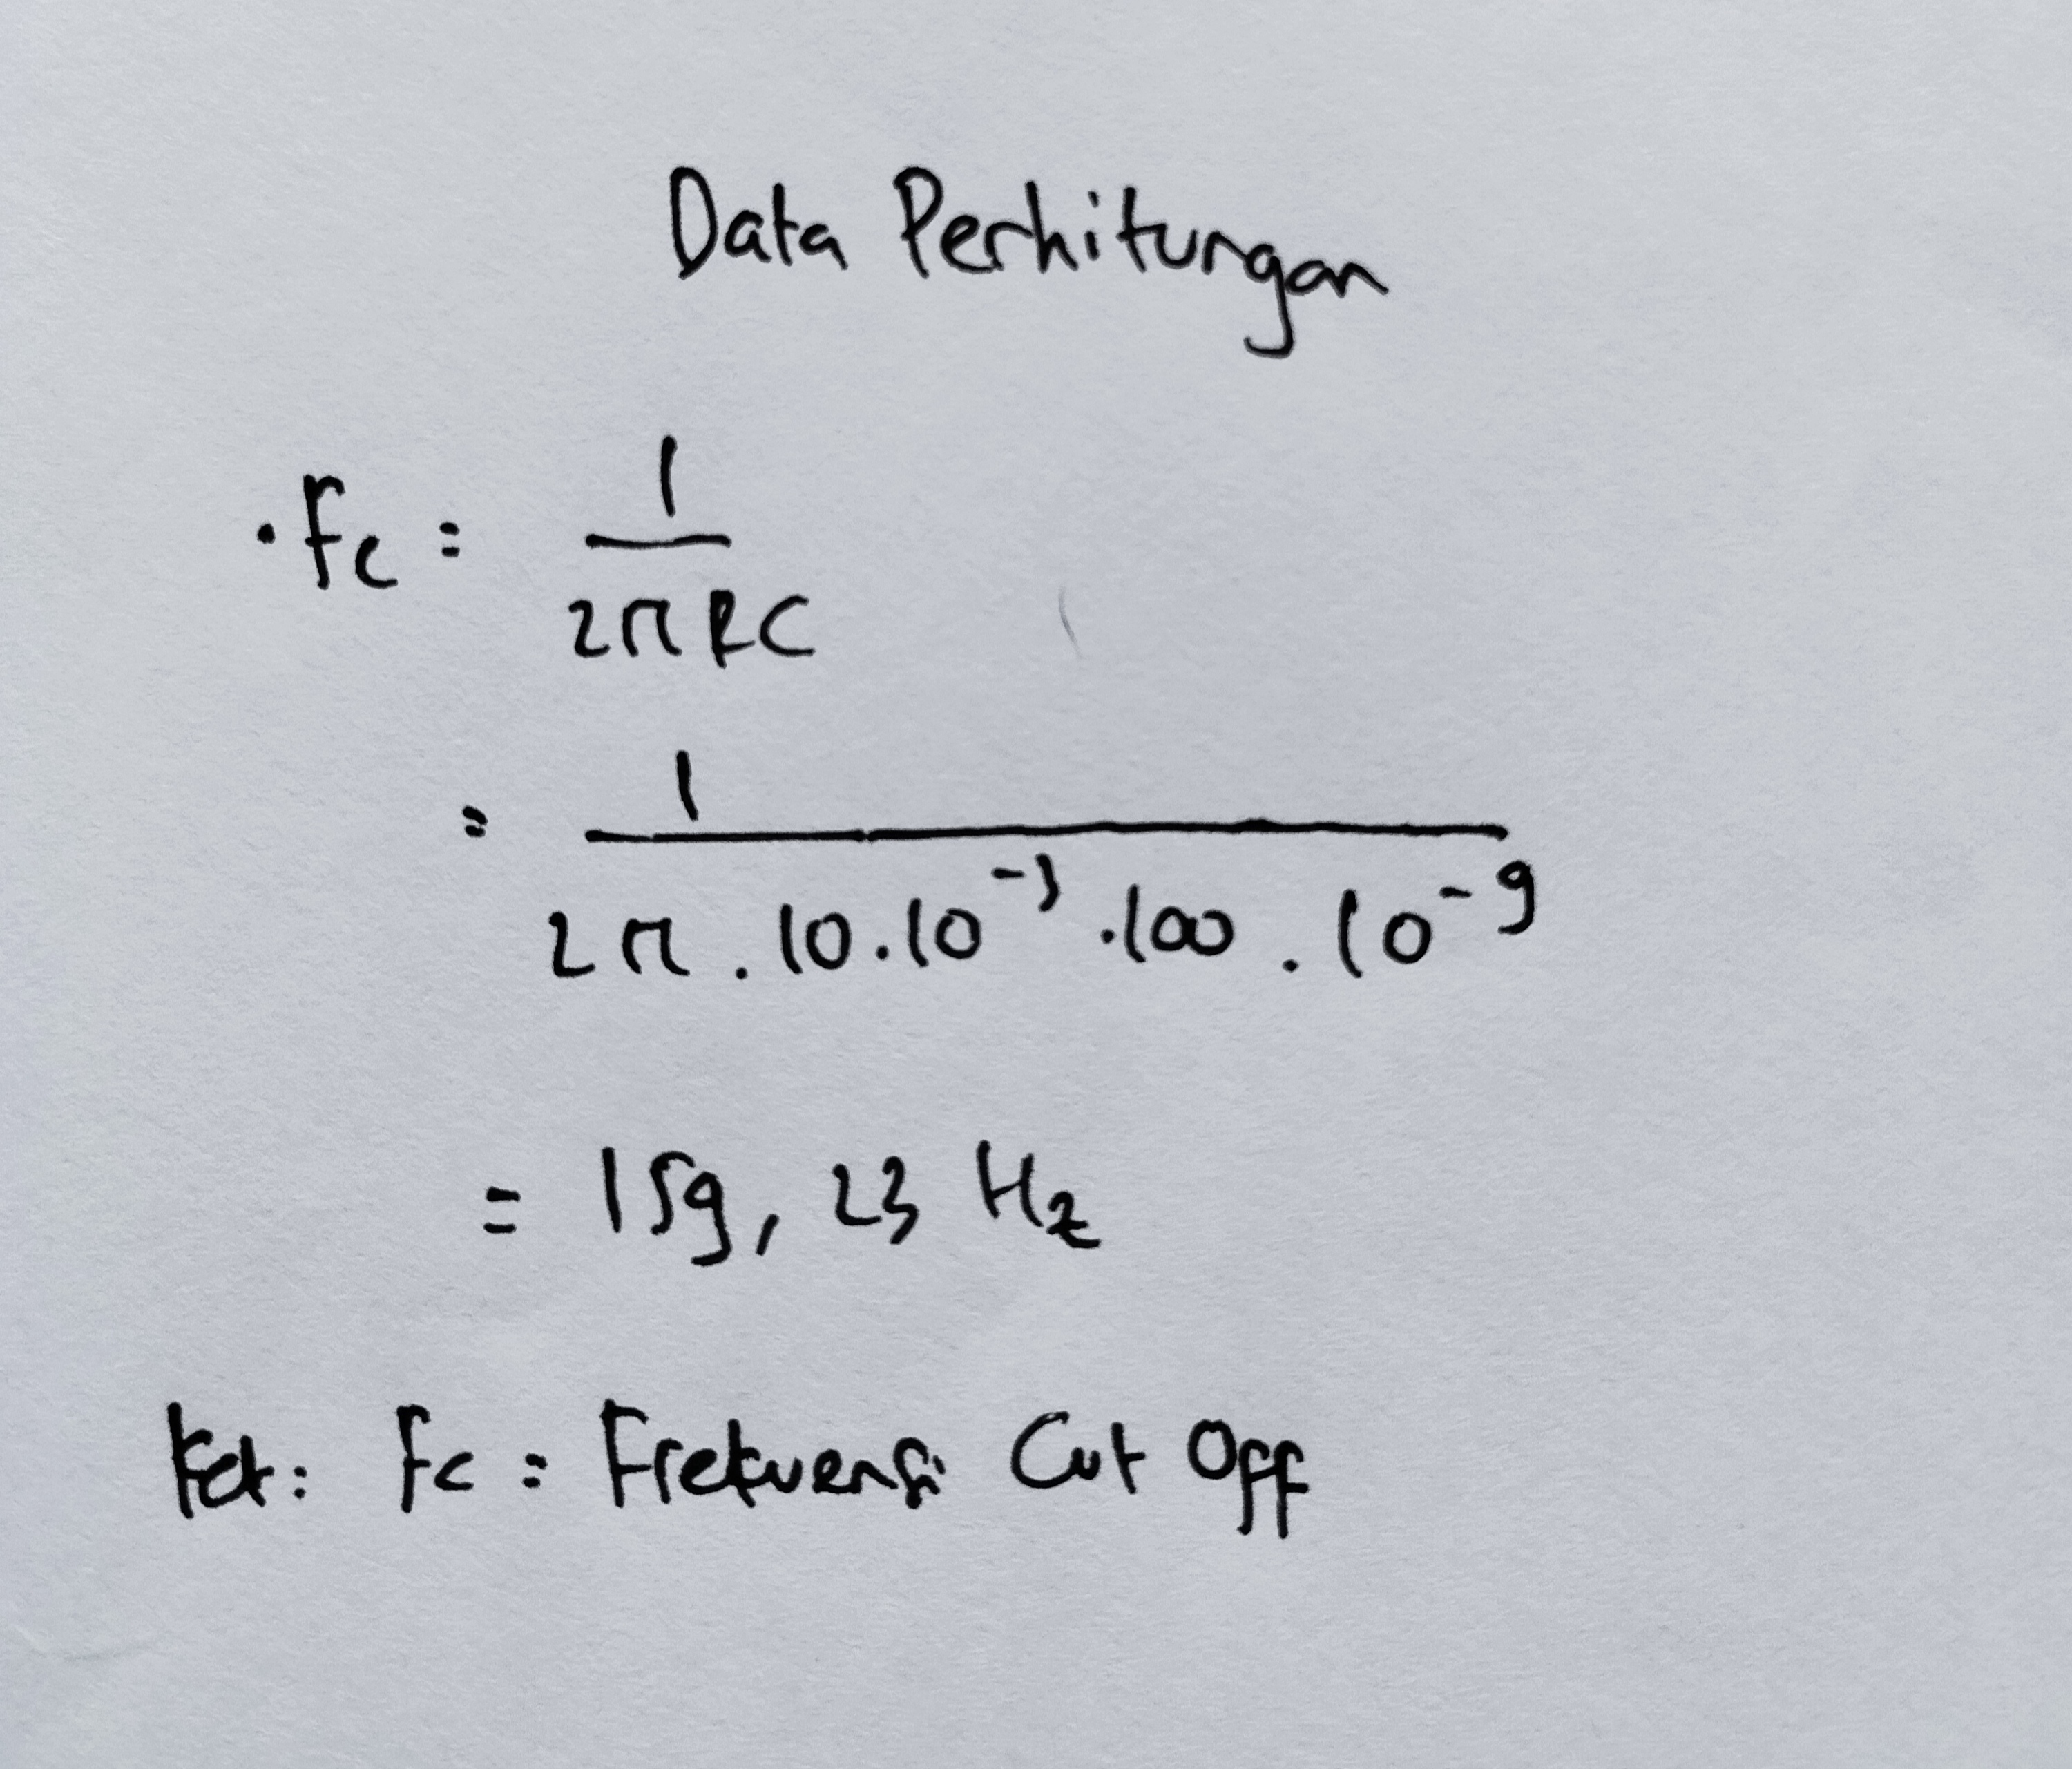 Data Perhitungan
· Fc = 1 / 2π RC
= 1 / 2π . 10 . 10⁻³ . 100 . 10⁻⁹
= 159, 23 Hz
Ket : Fc = Frekuensi Cut Off